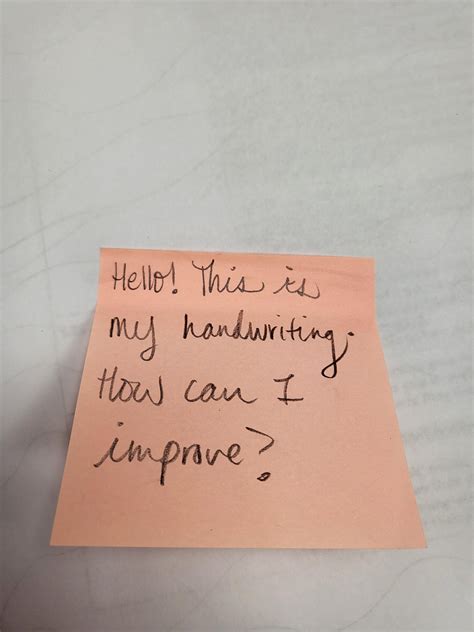 Hello! This is
my handwriting.
How can I
improve?